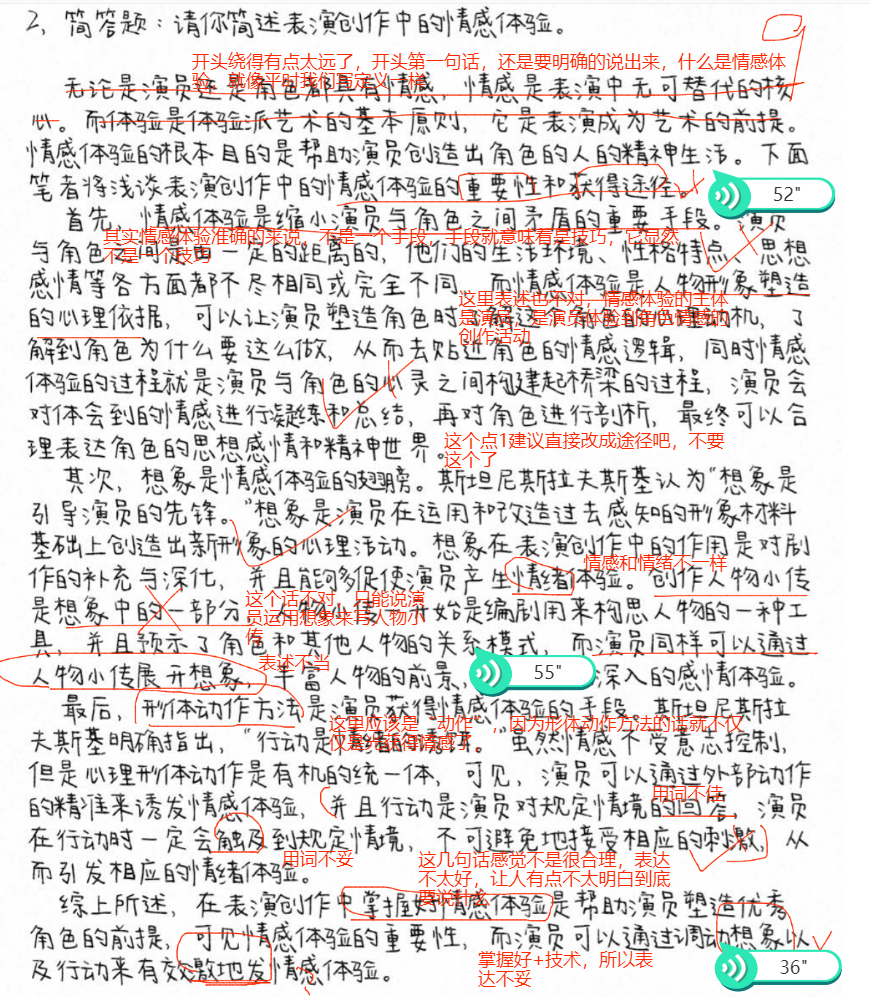 2、简答题：请你简述表演创作中的情感体验。
开头绕得有点太远了，开头第一句话，还是要明确的说出来，什么是情感体
验，就像平时我们写定义一样
无论是演员还是角色都具有情感，情感是表演中无可替代的核
心。而体验是体验派艺术的基本原则，它是表演成为艺术的前提。
情感体验的根本目的是帮助演员创造出角色的人的精神生活。下面
笔者将浅谈表演创作中的情感体验的重要性和获得途径。
52"
首先，情感体验是缩小演员与角色之间矛盾的重要手段。演员
其实情感体验准确的来说，不是一个手段，手段就意味着是技巧，它显然
不是一个技巧
与角色之间是由一定的距离的，他们的生活环境、性格特点、思想
感情等各方面都不尽相同或完全不同，而情感体验是人物形象塑造
这里表述也不对，情感体验的主体
是演员，是演员体验到角色情感的
创作活动
的心理依据，可以让演员塑造角色时了解这个角色的心理动机，了
解到角色为什么要这么做，从而去贴近角色的情感逻辑，同时情感
体验的过程就是演员与角色的心灵之间构建起桥梁的过程，演员会
对体会到的情感进行凝练和总结，再对角色进行剖析，最终可以合
理表达角色的思想感情和精神世界。
这个点1建议直接改成途径吧，不要
这个了
其次，想象是情感体验的翅膀。斯坦尼斯拉夫斯基认为“想象是
引导演员的先锋。”想象是演员在运用和改造过去感知的形象材料
基础上创造出新形象的心理活动。想象在表演创作中的作用是对剧
情感和情绪不一样
作的补充与深化，并且能够促使演员产生情绪体验。创作人物小传
这个话不对，只能说演
员运用想象来写人物小
传
是想象中的一部分，人物小传一开始是编剧用来构思人物的一种工
具，并且预示了角色和其他人物的关系模式，而演员同样可以通过
表述不当
人物小传展开想象，丰富人物的前景，深入的感情体验。
55"
最后，形体动作方法是演员获得情感体验的手段。斯坦尼斯拉
这里应该是“动作”，因为形体动作方法的话就不仅
仅是获得情感了
夫斯基明确指出，“行动是情绪的诱饵。”虽然情感不受意志控制，
但是心理形体动作是有机的统一体，可见，演员可以通过外部动作
用词不佳
的精准来诱发情感体验，并且行动是演员对规定情境的回答，演员
在行动时一定会触及到规定情境，不可避免地接受相应的刺激，从
用词不妥
这几句话感觉不是很合理，表达
不太好，让人有点不太明白到底
要说什么
而引发相应的情绪体验。
综上所述，在表演创作中掌握好情感体验是帮助演员塑造优秀
角色的前提，可见情感体验的重要性，而演员可以通过调动想象以
掌握好+技术，所以表
达不妥
36"
及行动来有效激地发情感体验。